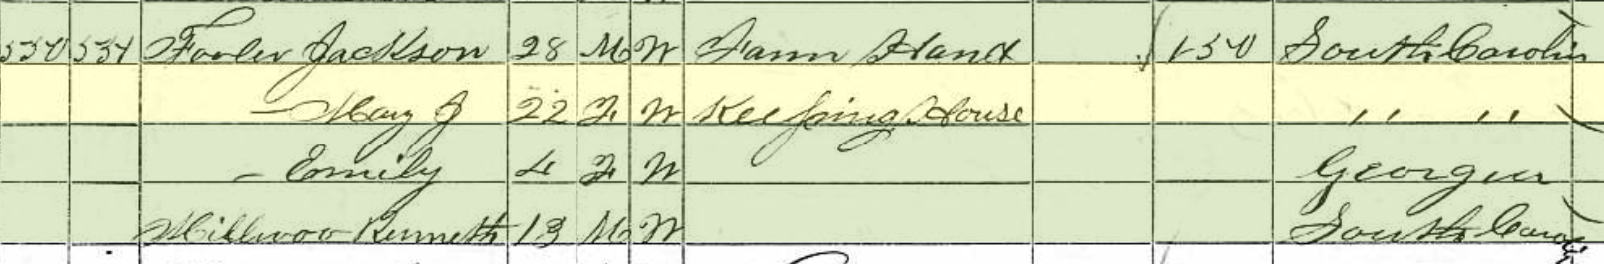 Jackson 28 M W Farm Hand 150 South Carolin
— Mary J 22 F W Keeping House " "
— Emily 4 F W Georgia
Kenneth 13 M W South Caro